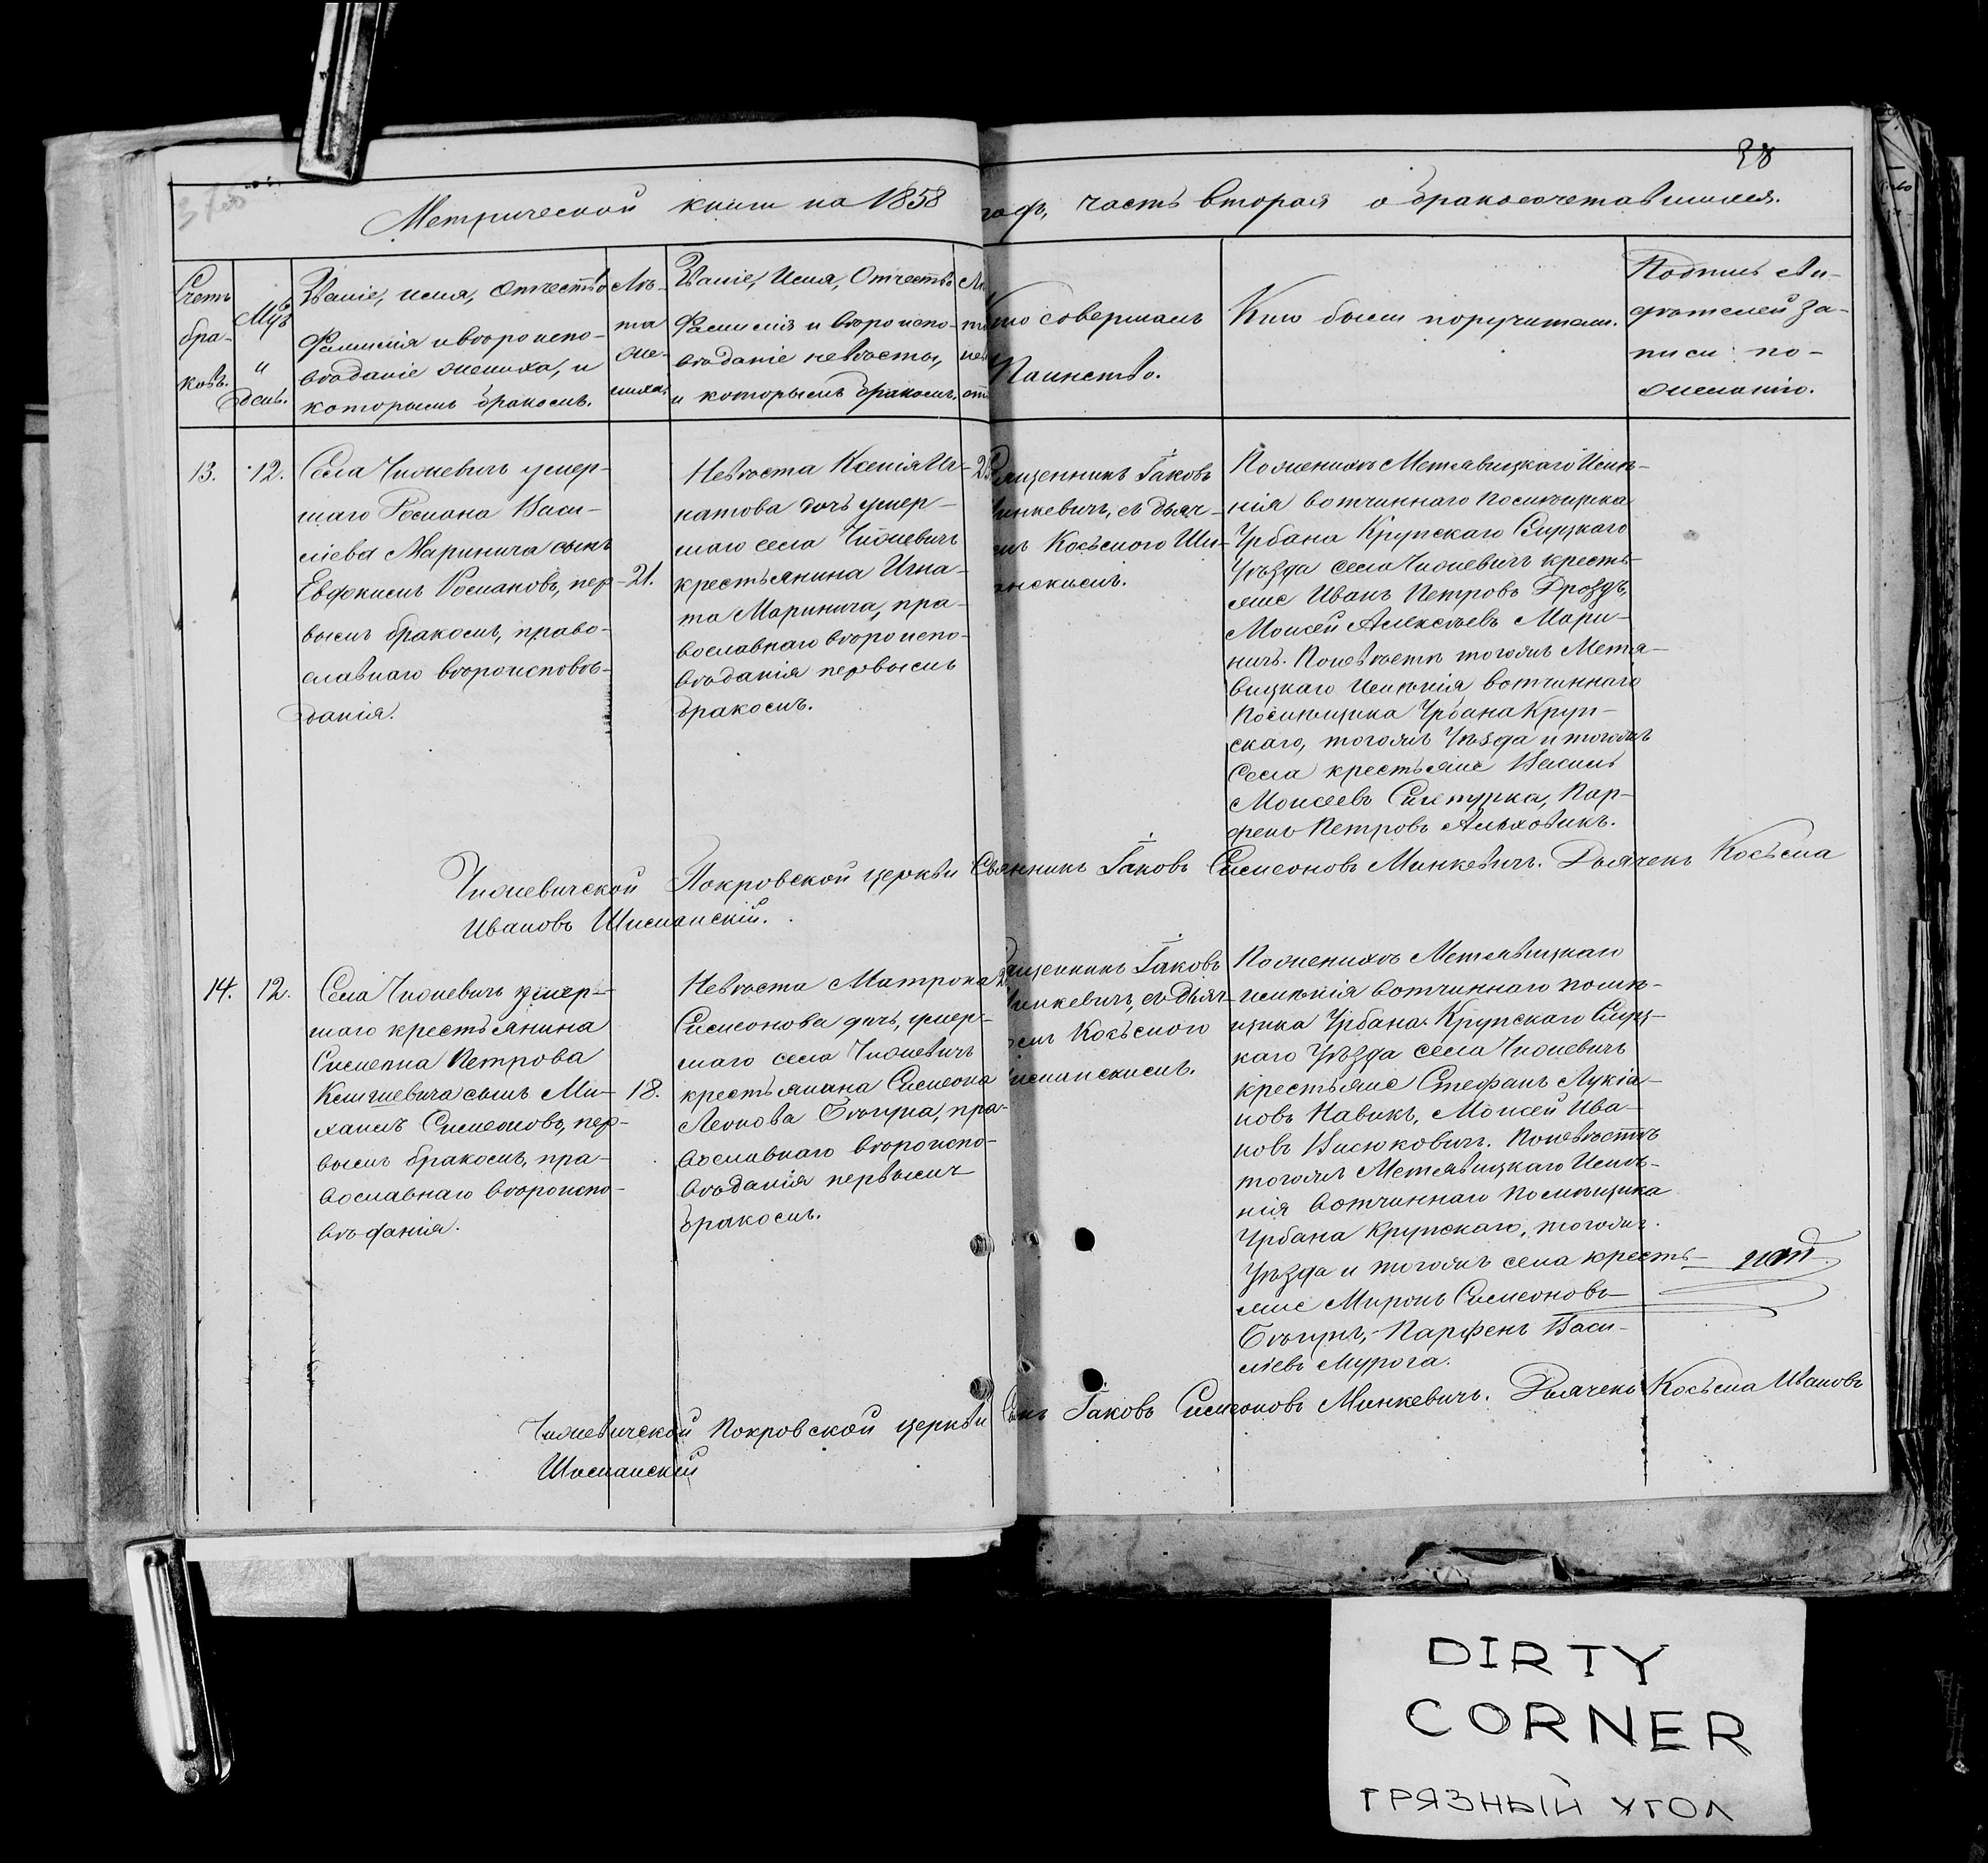 38
Метрической книги на 1858
годъ, часть вторая о бракосочетавшихся.
Счетъ
бра-
ковъ.
Мцъ
и
день.
Званіе, имя, Отчество
Фамилія и вѣроиспо-
вѣданіе жениха, и
которымъ бракомъ.
Лѣ-
та
же-
ниха.
Званіе, Имя, Отчество
Фамилія и вѣроиспо-
вѣданіе невѣсты,
и которымъ бракомъ.
Кто совершалъ
Таинство.
Кто были поручители.
Подпись сви-
дѣтелей за-
писи по-
желанію.
13.
12.
Села Чижевичъ умер-
шаго Романа Васи-
ліева Маринича сынъ
Евфкимъ Романовъ, пер-
вымъ бракомъ, право-
славнаго вѣроисповѣ-
данія.
21.
Невѣста Ксенія Иг-
натова дочь умер-
шаго села Чижевичъ
крестьянина Игна-
та Маринича, пра-
вославнаго вѣроиспо-
вѣданія первымъ
бракомъ.
Священникъ Іаковъ
Минкевичъ, съ дьяч-
Косьмою Ши-
манскимъ.
По женихѣ Метявицкаго Имѣ-
нія вотчиннаго помѣщика
Урбана Крупскаго Слуцкаго
Уѣзда села Чижевичъ кресть-
яне Иванъ Петровъ Дроздъ,
Моисей Алексѣевъ Мари-
ничъ. По невѣстѣ тогожъ Метя-
вицкаго имѣнія вотчиннаго
Помѣщика Урбана Круп-
скаго, тогожъ Уѣзда и тогожъ
Села крестьяне Василь
Моисеевъ Снетурка, Пар-
фенъ Петровъ Альховикъ.
Чижевичской Покровской церкви Свянникъ Іаковъ Симеоновъ Минкевичъ. Дьячекъ Косьма
Ивановъ Шиманскій.
14.
12.
Села Чижевичъ умер-
шаго крестьянина
Симеона Петрова
сынъ Ми-
хаилъ Симеоновъ, пер-
вымъ бракомъ, пра-
вославнаго вѣроиспо-
вѣданія.
18.
Невѣста Матрона
Симеонова дочь, умер-
шаго села Чижевичъ
крестьянина Симеона
Леонова Бѣгуна, пра-
вославнаго вѣроиспо-
вѣданія первымъ
бракомъ.
Священникъ Іаковъ
Минкевичъ, съ дьяч-
Косьмою
Шиманскимъ.
По женихѣ Метявицкаго
имѣнія вотчиннаго помѣ-
щика Урбана Крупскаго Слуц-
каго Уѣзда села Чижевичъ
крестьяне Стефанъ Лукіа-
новъ Навикъ, Моисей Ива-
новъ Висюковичъ. По невѣстѣ
тогожъ Метявицкаго Имѣ-
нія вотчиннаго помѣщика
Урбана Крупскаго, тогожъ
Уѣзда и тогожъ села кресть-
яне Миронъ Симеоновъ
Бѣгунъ, Парфенъ Васи-
ліевъ Мурога.
Чижевичской Покровской церкви Свян. Іаковъ Симеоновъ Минкевичъ. Дьячекъ Косьма Ивановъ
Шиманскій
DIRTY
CORNER
ГРЯЗНЫЙ УГОЛ